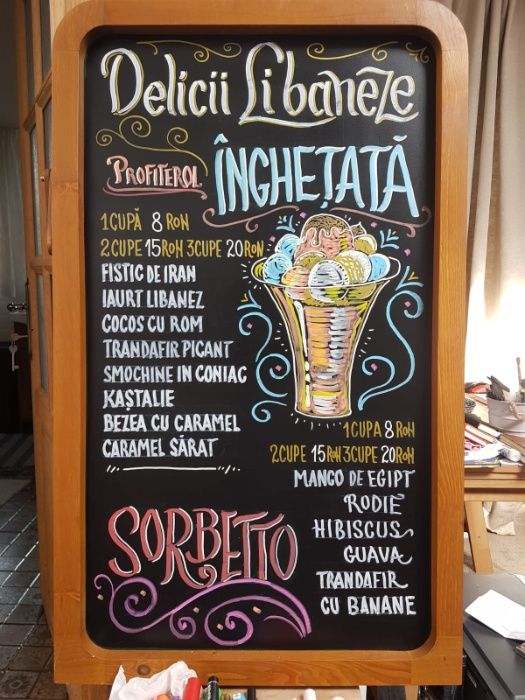 Delicii Libaneze
PROFITEROL ÎNGHEȚATĂ
1 CUPĂ 8 RON
2 CUPE 15 RON 3 CUPE 20 RON
FISTIC DE IRAN
IAURT LIBANEZ
COCOS CU ROM
TRANDAFIR PICANT
SMOCHINE IN CONIAC
KAȘTALIE
BEZEA CU CARAMEL
CARAMEL SĂRAT
1 CUPA 8 RON
2 CUPE 15 RON 3 CUPE 20 RON
MANGO DE EGIPT
RODIE
HIBISCUS
GUAVA
TRANDAFIR
CU BANANE
SORBETTO